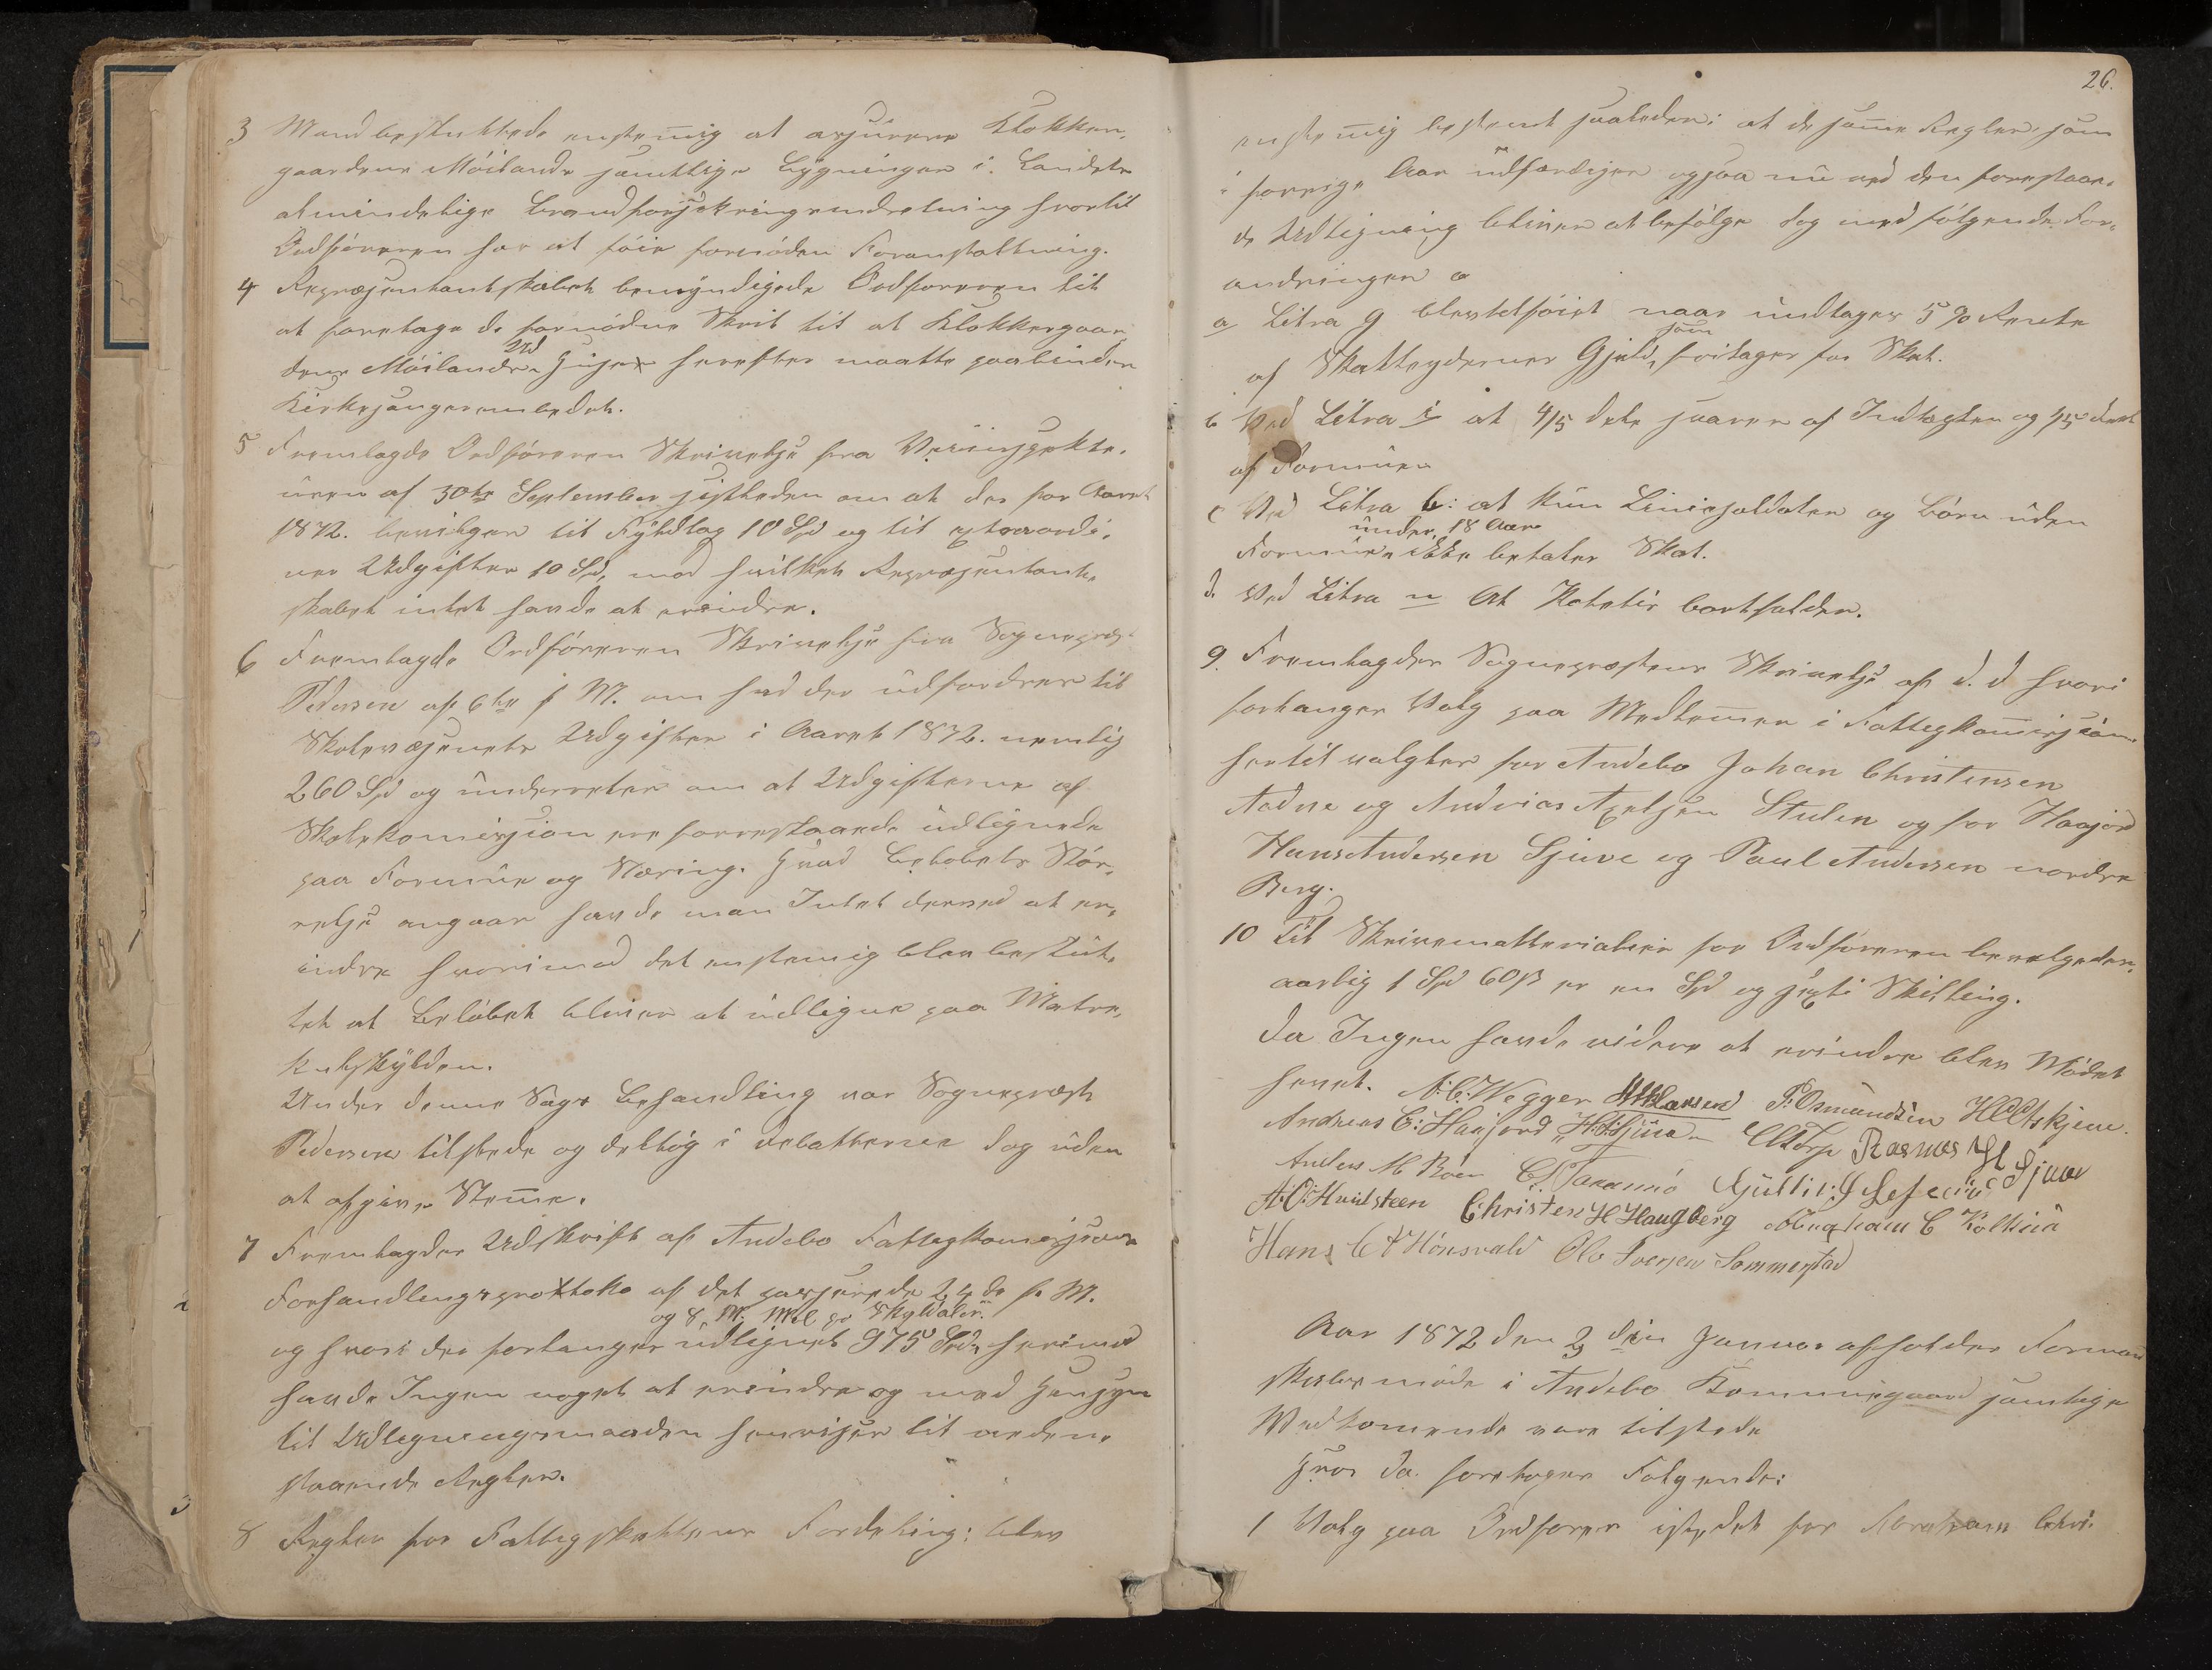 3 Mand besluttede enstemig at assurere Klokker-
gaardene Möilands samtlige bygninger i Landets
almindelige Brandforsikringsindretning hvortil
Ordföreren har at föie fornöden Foranstaltning.
4 Repræsentantskabet bemyndigede Ordföreren til
at foretage de fornödne Skrit til at Klokkergaar-
dene Möiland herefter maatte paalindes
Kirkesangerembedet.
5 Fremlagde Ordföreren Skrivelse fra Veiinspekte-
uren af 30te September sistleden om at der for Aaret
1872. bevilges til Fyldtag 10 Spd og til extraordi-
ner Udgifter 10 Spd, mod hvilket Repræsentant-
skabet intet havde at erindre.
6 Fremlagde Ordföreren Skrivelse fra Sognepræst
Pedersen af 6te f M. om hvad der udfordres til
Skolevæsenets Udgifter i Aaret 1872. nemlig
260 Spd og underretter om at Udgifterne af
Skolekomission ere forrestaaende udlignede
paa Formue og Næring. Hvad Belöbets Stör-
relse angaar havde man Intet derved at er-
indre hvorimod det enstemig blev beslut-
tet at Belöbet bliver at udligne paa Matre-
kulskylden.
Under denne Sags Behandling var Sognepræst
Pedersen tilstede og deltog i debatterne dog uden
at afgive Stemme.
7 Fremlagdes Udskrift af Andebo Fattigkomissions
Forhandlingsprotoko af det passerede 24de f. M.
og 8 M. Mel pr Skyldaler
og hvori der forlanges udlignet 975 Spd, herimod
havde Ingen noget at erindre og med Hensyn
til Udligningsmaaden henvises til neden-
staaende Regler.
8 Regler for Fattigskattens Fordeling: blev
26.
enstemig bestemt saaledes: at de samme Regler, som
i forrige Aar udfærdiges ogsaa nu ved den forestaaen-
de Udligning bliver at befölge dog med fölgende For-
andringer
a Litra g blev tilföiet naar undtages 5 % Rente
som
af Skatteydernes Gjeld, fritages for Skat.
b Ved Litra i at 4/5 dele svares af Indtægter og 1/5 deel
af Formuen
c Ved Litra b: at kun Liniesoldater og börn uden
under 18 Aar
Formue ikke betaler Skat.
d. Ved Litra n At bortfalder.
9. Fremlagdes Sognepræstens Skrivelse af d. d hvori
forlanges Valg paa Medlemmer i Fattigkommission
hertil valgtes for Andebo Johan Christensen
Aadne og Andreas Axelsen Stulen og for Haajord
Hans Andersen Gjuve og Paul Andersen nordre
Berg.
10 Til Skrivematterialier for Ordföreren bevilgedes
aarlig 1 Spd 60 ß er en Spd og sexti Skilling.
da Ingen havde videre at erindre blev Mödet
hevet. A. C. Wegger P. Osmundsen
Andreas C: Haajord Rasmus
Anders M Röen
A. O. Hvidsteen Christen H Haugberg
Hans C A Hönsvald Ole Iversen Sommerstad
Aar 1872 den 2 den Januar afholdes Formand
skabsmöde i Andebo Kommunegaard samtlige
Vedkomende vare tilstede
Hvor da foretages Fölgende:
1 Valg paa Ordförer istedet for Abraham Chri-